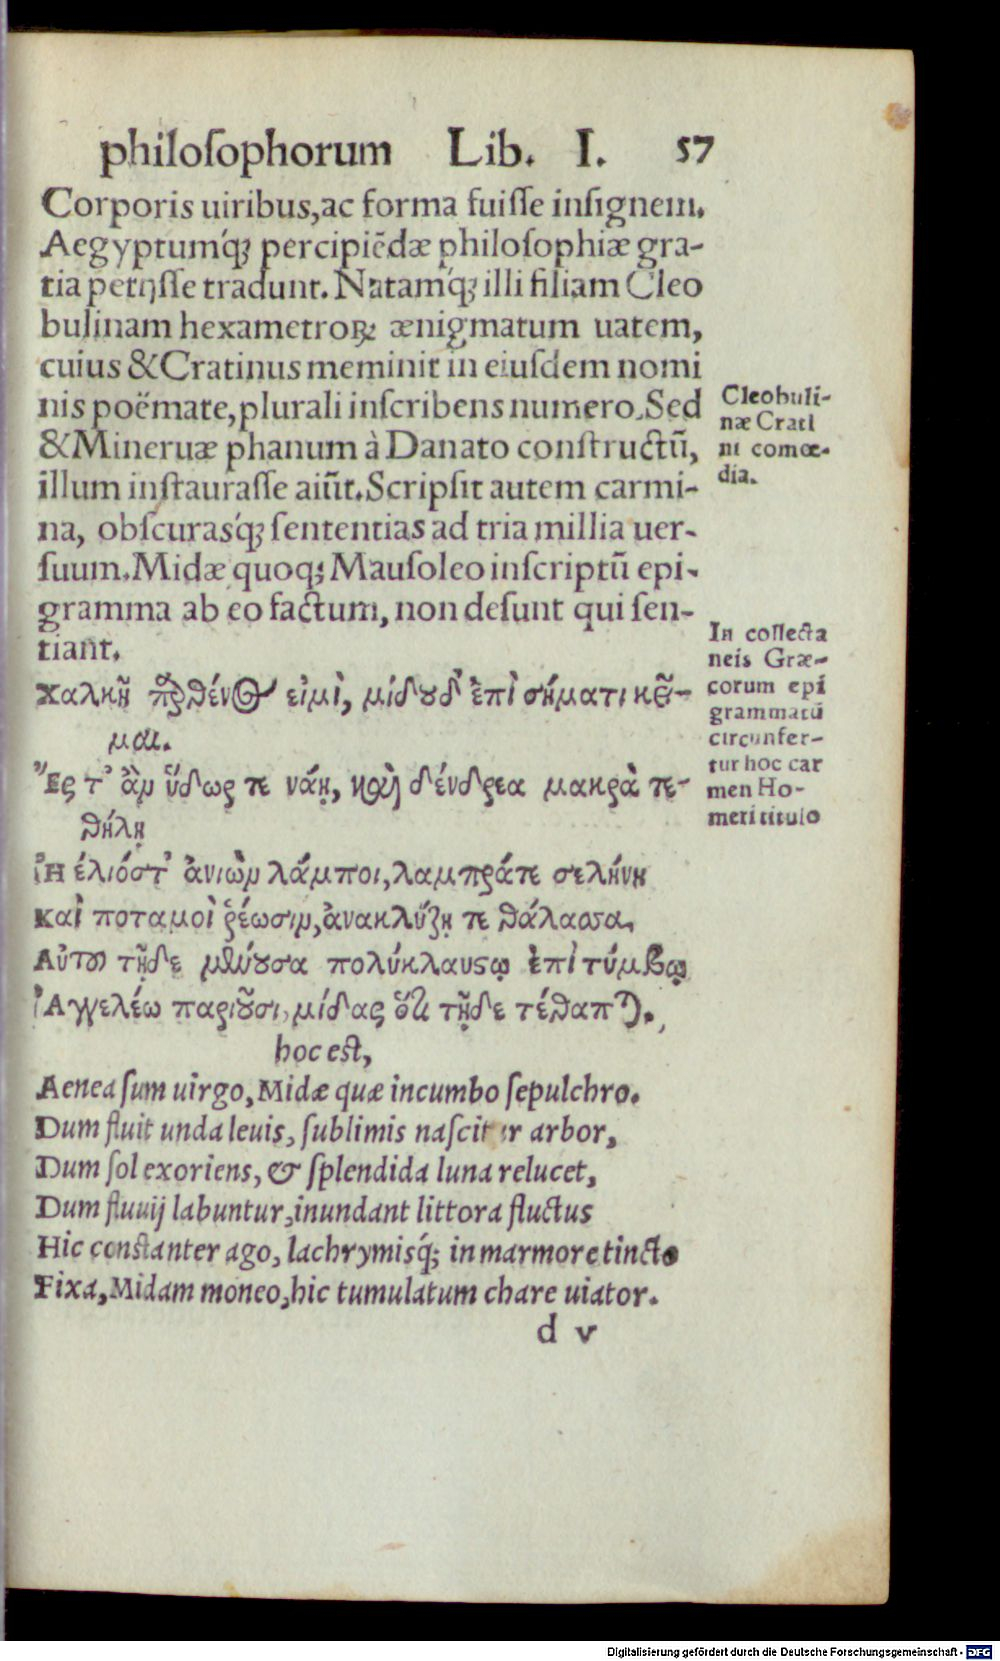 philoſophorum Lib. I. 57
Corporis uiribus, ac forma fuiſſe inſignem.
Aegyptumq́; percipiẽdæ philoſophiæ gra-
tia petijſſe tradunt. Natamq́; illi filiam Cleo
bulinam hexametroꝝ ænigmatum uatem,
cuius & Cratinus meminit in eiuſdem nomi
nis poëmate, plurali inſcribens numero. Sed
& Mineruæ phanum à Danato conſtructũ,
illum inſtauraſſe aiũt. Scripſit autem carmi-
na, obſcurasq́; ſententias ad tria millia uer-
ſuum. Midæ quoq; Mauſoleo inſcriptũ epi-
gramma ab eo factum, non deſunt qui ſen-
tiant.
Cleobuli-
næ Crati
ni comœ-
dia.
In collecta
neis Græ-
corum epi
grammatũ
circunfer-
tur hoc car
men Ho-
meri titulo
χαλκῆ παρθένος εἰμὶ, μίδου δ' ἐπὶ σήματι κεῖ-
μαι.
Ἔς τ' ἂν ὕδωρ τε νάῃ, καὶ δένδρεα μακρὰ τε-
θήλῃ
Ἠέλιός τ' ἀνιὼν λάμποι, λαμπρά τε σελήνη
καὶ ποταμοὶ ῥέωσιν, ἀνακλύζῃ τε θάλασσα,
Αὐτοῦ τῇδε μένουσα πολύκλαυστῳ ἐπὶ τύμβῳ
Ἀγγελέω παριοῦσι, μίδας ὅτι τῇδε τέθαπται.
hoc eſt,
Aenea ſum uirgo, Midæ quæ incumbo ſepulchro.
Dum fluit unda leuis, ſublimis naſcitur arbor,
Dum ſol exoriens, & ſplendida luna relucet,
Dum fluuij labuntur, inundant littora fluctus
Hic conſtanter ago, lachrymisq́; in marmore tincto
Fixa, Midam moneo, hic tumulatum chare uiator.
d v
Digitalisierung gefördert durch die Deutsche Forschungsgemeinschaft - DFG